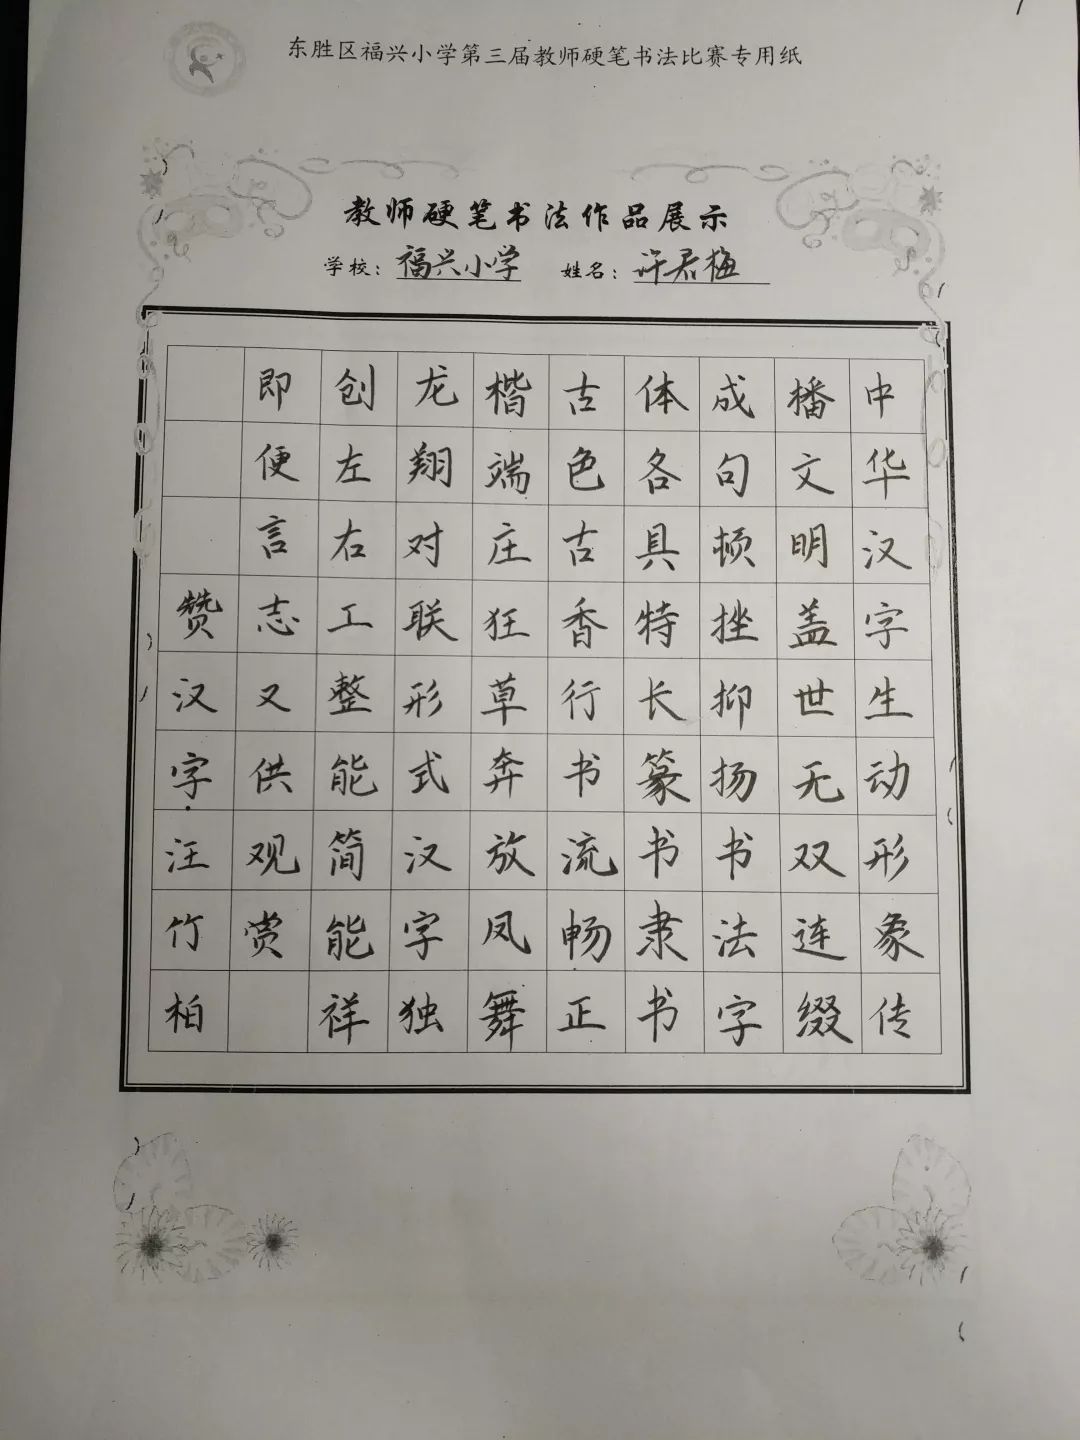 东胜区福兴小学第三届教师硬笔书法比赛专用纸
教师硬笔书法作品展示
学校：福兴小学 姓名：许君梅
中华汉字生动形象传
播文明盖世无双连缀
成句顿挫抑扬书法字
体各具特长篆书隶书
古色古香行书流畅正
楷端庄狂草奔放凤舞
龙翔对联形式汉字独
创左右工整能简能祥
即便言志又供观赏
赞汉字汪竹柏